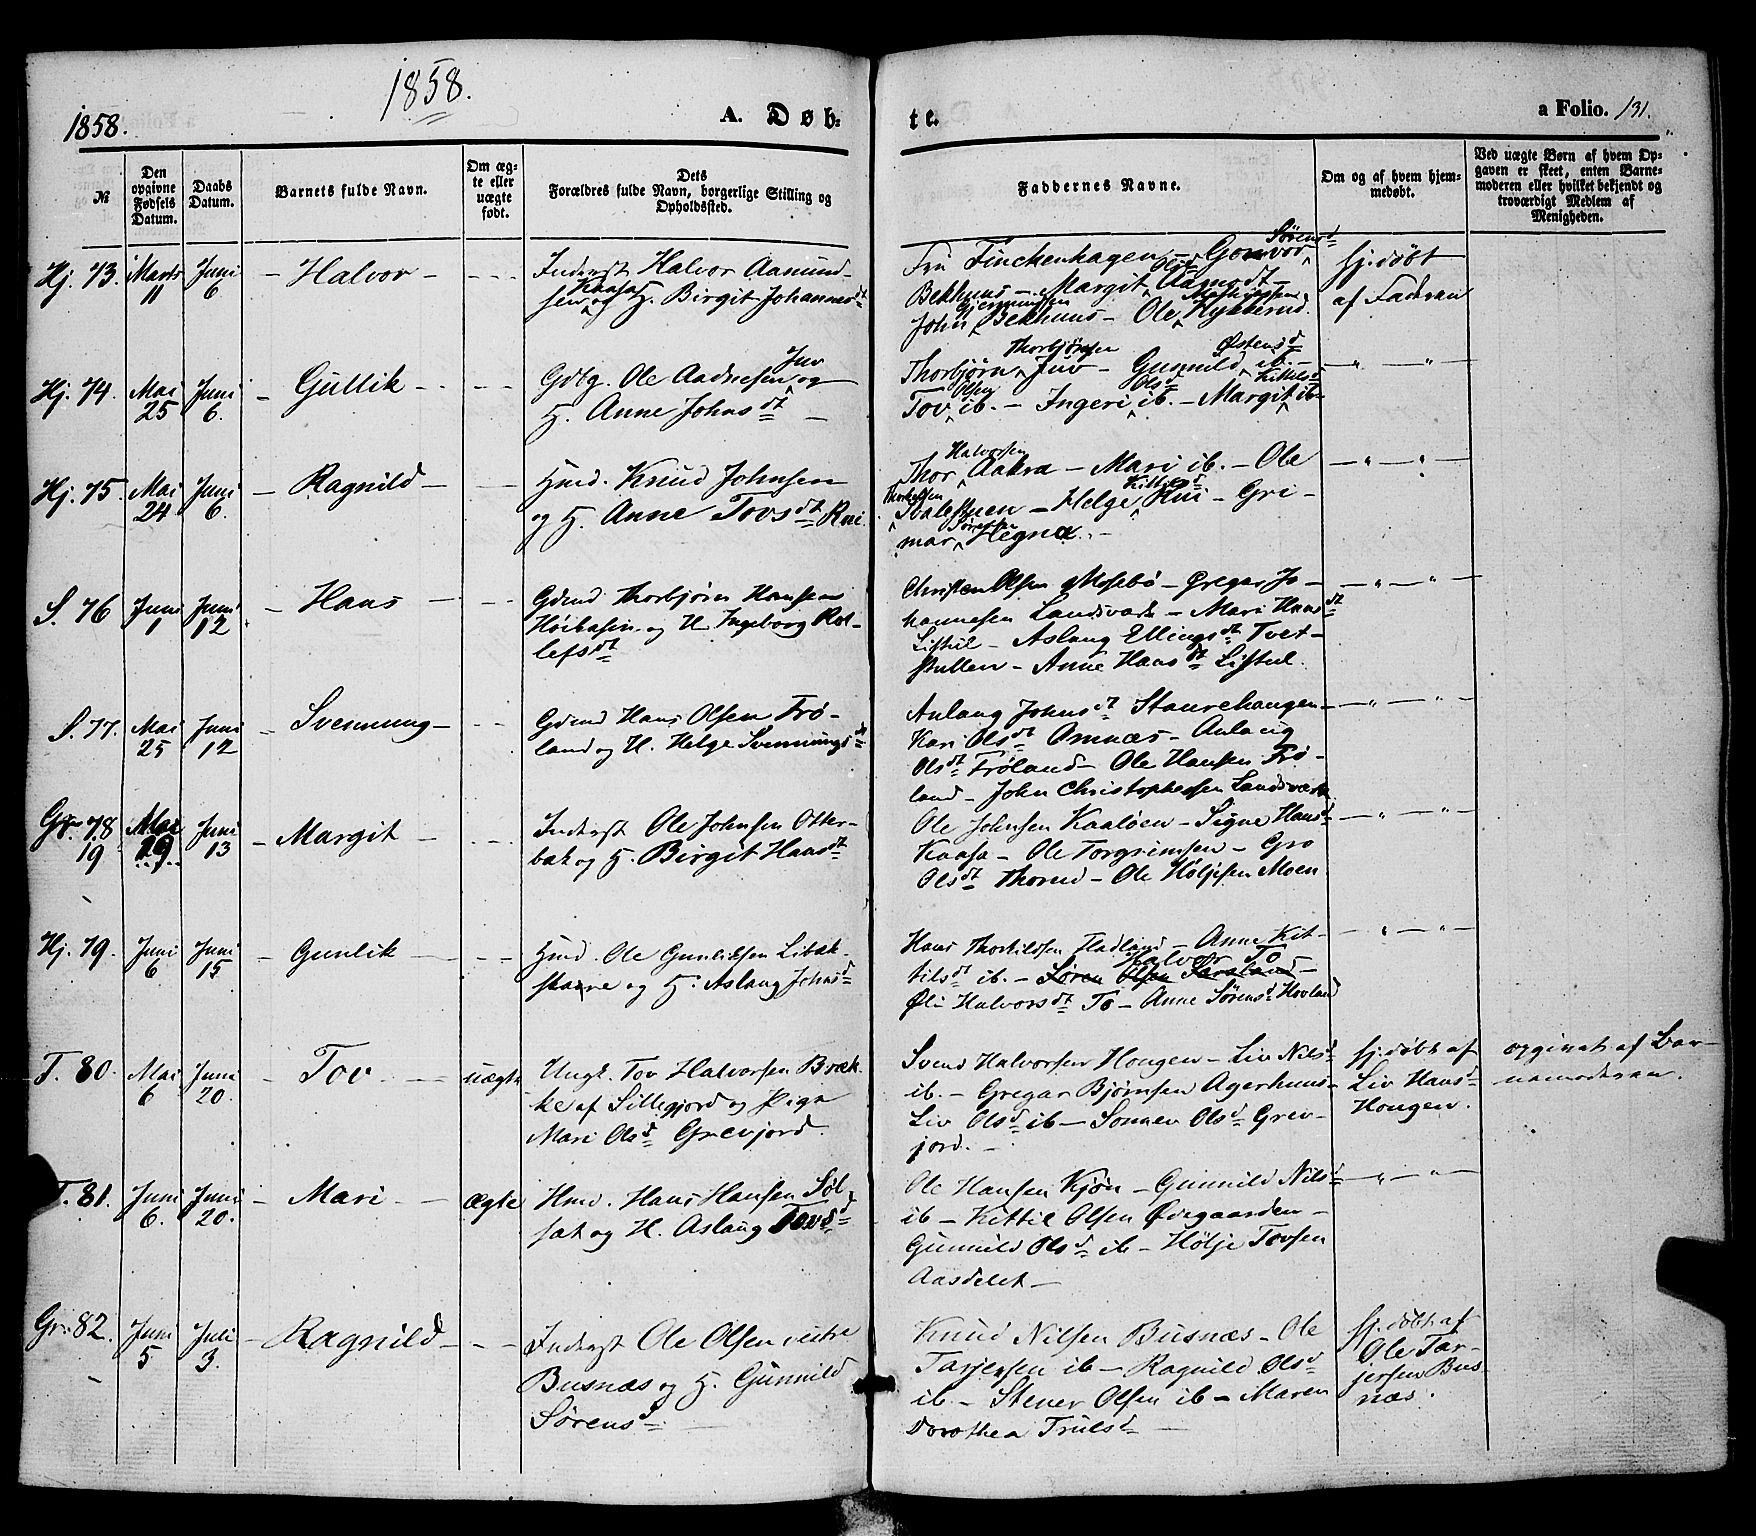 1858.
1858. A. Døb-
te. a Folio. 131.
№
Den opgivne Fødsels Datum.
Daabs Datum.
Barnets fulde Navn.
Om ægte eller uægte født.
Dets
Forældres fulde Navn, borgerlige Stilling og
Opholdssted.
Faddernes Navne.
Om og af hvem hjem-
medøbt.
Ved uægte Børn af hvem Op-
gaven er skeet, enten Barne-
moderen eller hvilket bekjendt og
troværdigt Medlem af
Menigheden.
Hj. 73. Marts 11 Juni 6 - Halvor - - - -
Inderst Halvor Aamund-
sen Kaasa og H. Birgit Johannesdt
Fru Finckenhagen - Gonvor Sørensd
Bekhuus - Margit Olia Aamodt -
John Gjermundsen Bekhuus - Ole Mathiesen Hykkerud.
hj. døbt
af Faderen
Hj. 74. Mai 25 Juni 6. Gullik - - - -
Gdbg. Ole Aadnesen Juv og
H. Anne Johnsdt -
Thorbjørn Thorbjørnsen Juv - Gunnild Østensd ib. -
Tov Olsen ib. - Ingeri Olsd ib. - Margit Kittilsd ib -
- " - "
Hj. 75. Mai 24 Juni 6. - Ragnild - - - -
Hmd. Knud Johnsen
og H. Anne Tovsdt Rui
Thor Halvorsen Aakra - Mari ib. - Ole
Thorkelsen Svalestuen - Helge Kittilsd Rui - Gri-
mar Sørensen Hegna. -
- " - "
S. 76 Juni 1 Juni 12 - Hans - - -
Gdmd Thorbjørn Hansen
Høibasen og H Ingeborg Rol-
lefsdt
Christen Olsen Mosebø - Gregar Jo-
hannesen Landsværk - Mari Hansdt
Listul - Aslaug Ellingsdt Tvet-
stullen - Anne Hansdt Listul.
- " - "
S. 77. Mai 25 Juni 12 - Svennung - - -
Gdmd Hans Olsen Frø-
land og H. Helge Svennungsdt
Anlaug Johnsdt Staurehaugen -
Kari Olsdt Omnæs - Anlaug
Olsdt Frøland - Ole Hansen Frø-
land - John Christophersen Landsværk
- " - "
Gr. 78 Mai 19 Juni 13 - Margit -
19
Inderst Ole Johnsen Otter-
bæk og H. Birgit Hansdt
Ole Johnsen Kaaløen - Signe Hansd
Kaasa - Ole Torgrimsen - Gro
Olsdt Thorud - Ole Høljesen Moen
- " - "
Hj. 79. Juni 6 Juni 15 - Gunlik - - -
Hmd. Ole Gunleiksen Libæk-
skaare og H. Aslaug Johnsd
Hans Thorkildsen Fladland - Anne Kit-
tilsdt ib. - Søren Olsen Farsland - Halvor To
Øli Halvorsdt To - Anne Sørensd Hovland
- " - "
T. 80. Mai 6 Juni 20. - Tov. - uægte
Ungk. Tov Halvorsen Bræk-
ke af Sillegjord og Pige
Mari Olsd Grevjord.
Svend Halvorsen Hongen - Liv Nilsd
ib. - Gregar Bjørnsen Agerhuus -
Liv Olsd ib - Sonnev Olsd Grev-
jord. -
hj. døbt af
Liv Hansd
Hongen.
opgivet af Bar-
nemoderen.
T. 81. Juni 6. Juni 20. - Mari - ægte
Hmd. Hans Hansen Søl-
sæt og H. Aslaug Tovsd
Ole Hansen Kjøn - Gunnild Nilsd
ib - Kittil Olsen Ødegaarden -
Gunnild Olsd ib - Hølje Tovsen
Aasdelet -
- " - "
Gr. 82. Juni 5 Juli 3. - Ragnild - - -
Inderst Ole Olsen vestre
Busnæs og H. Gunnild
Sørensd
Knud Nilsen Busnæs - Ole
Tarjersen ib - Ragnild Olsd
ib. - Stener Olsen ib - Maren
Dorothea Trulsd -
hj. døbt af
Ole Tar-
jersen Bus-
næs.